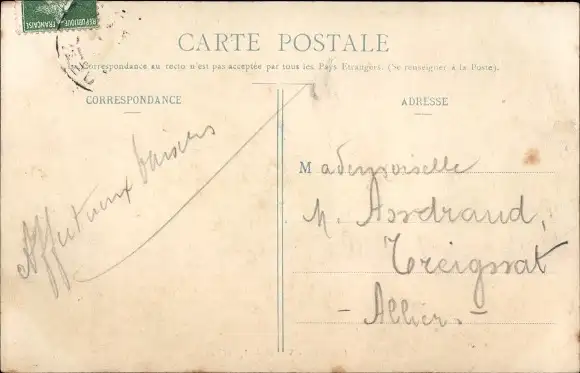 REPUBLIQUE FRANÇAISE
CARTE POSTALE
La Correspondance au recto n'est pas acceptée par tous les Pays Etrangers. (Se renseigner à la Poste).
CORRESPONDANCE
ADRESSE
Affectueux baisers
Mademoiselle
M. Assdraud,
Treigssat
- Allier -